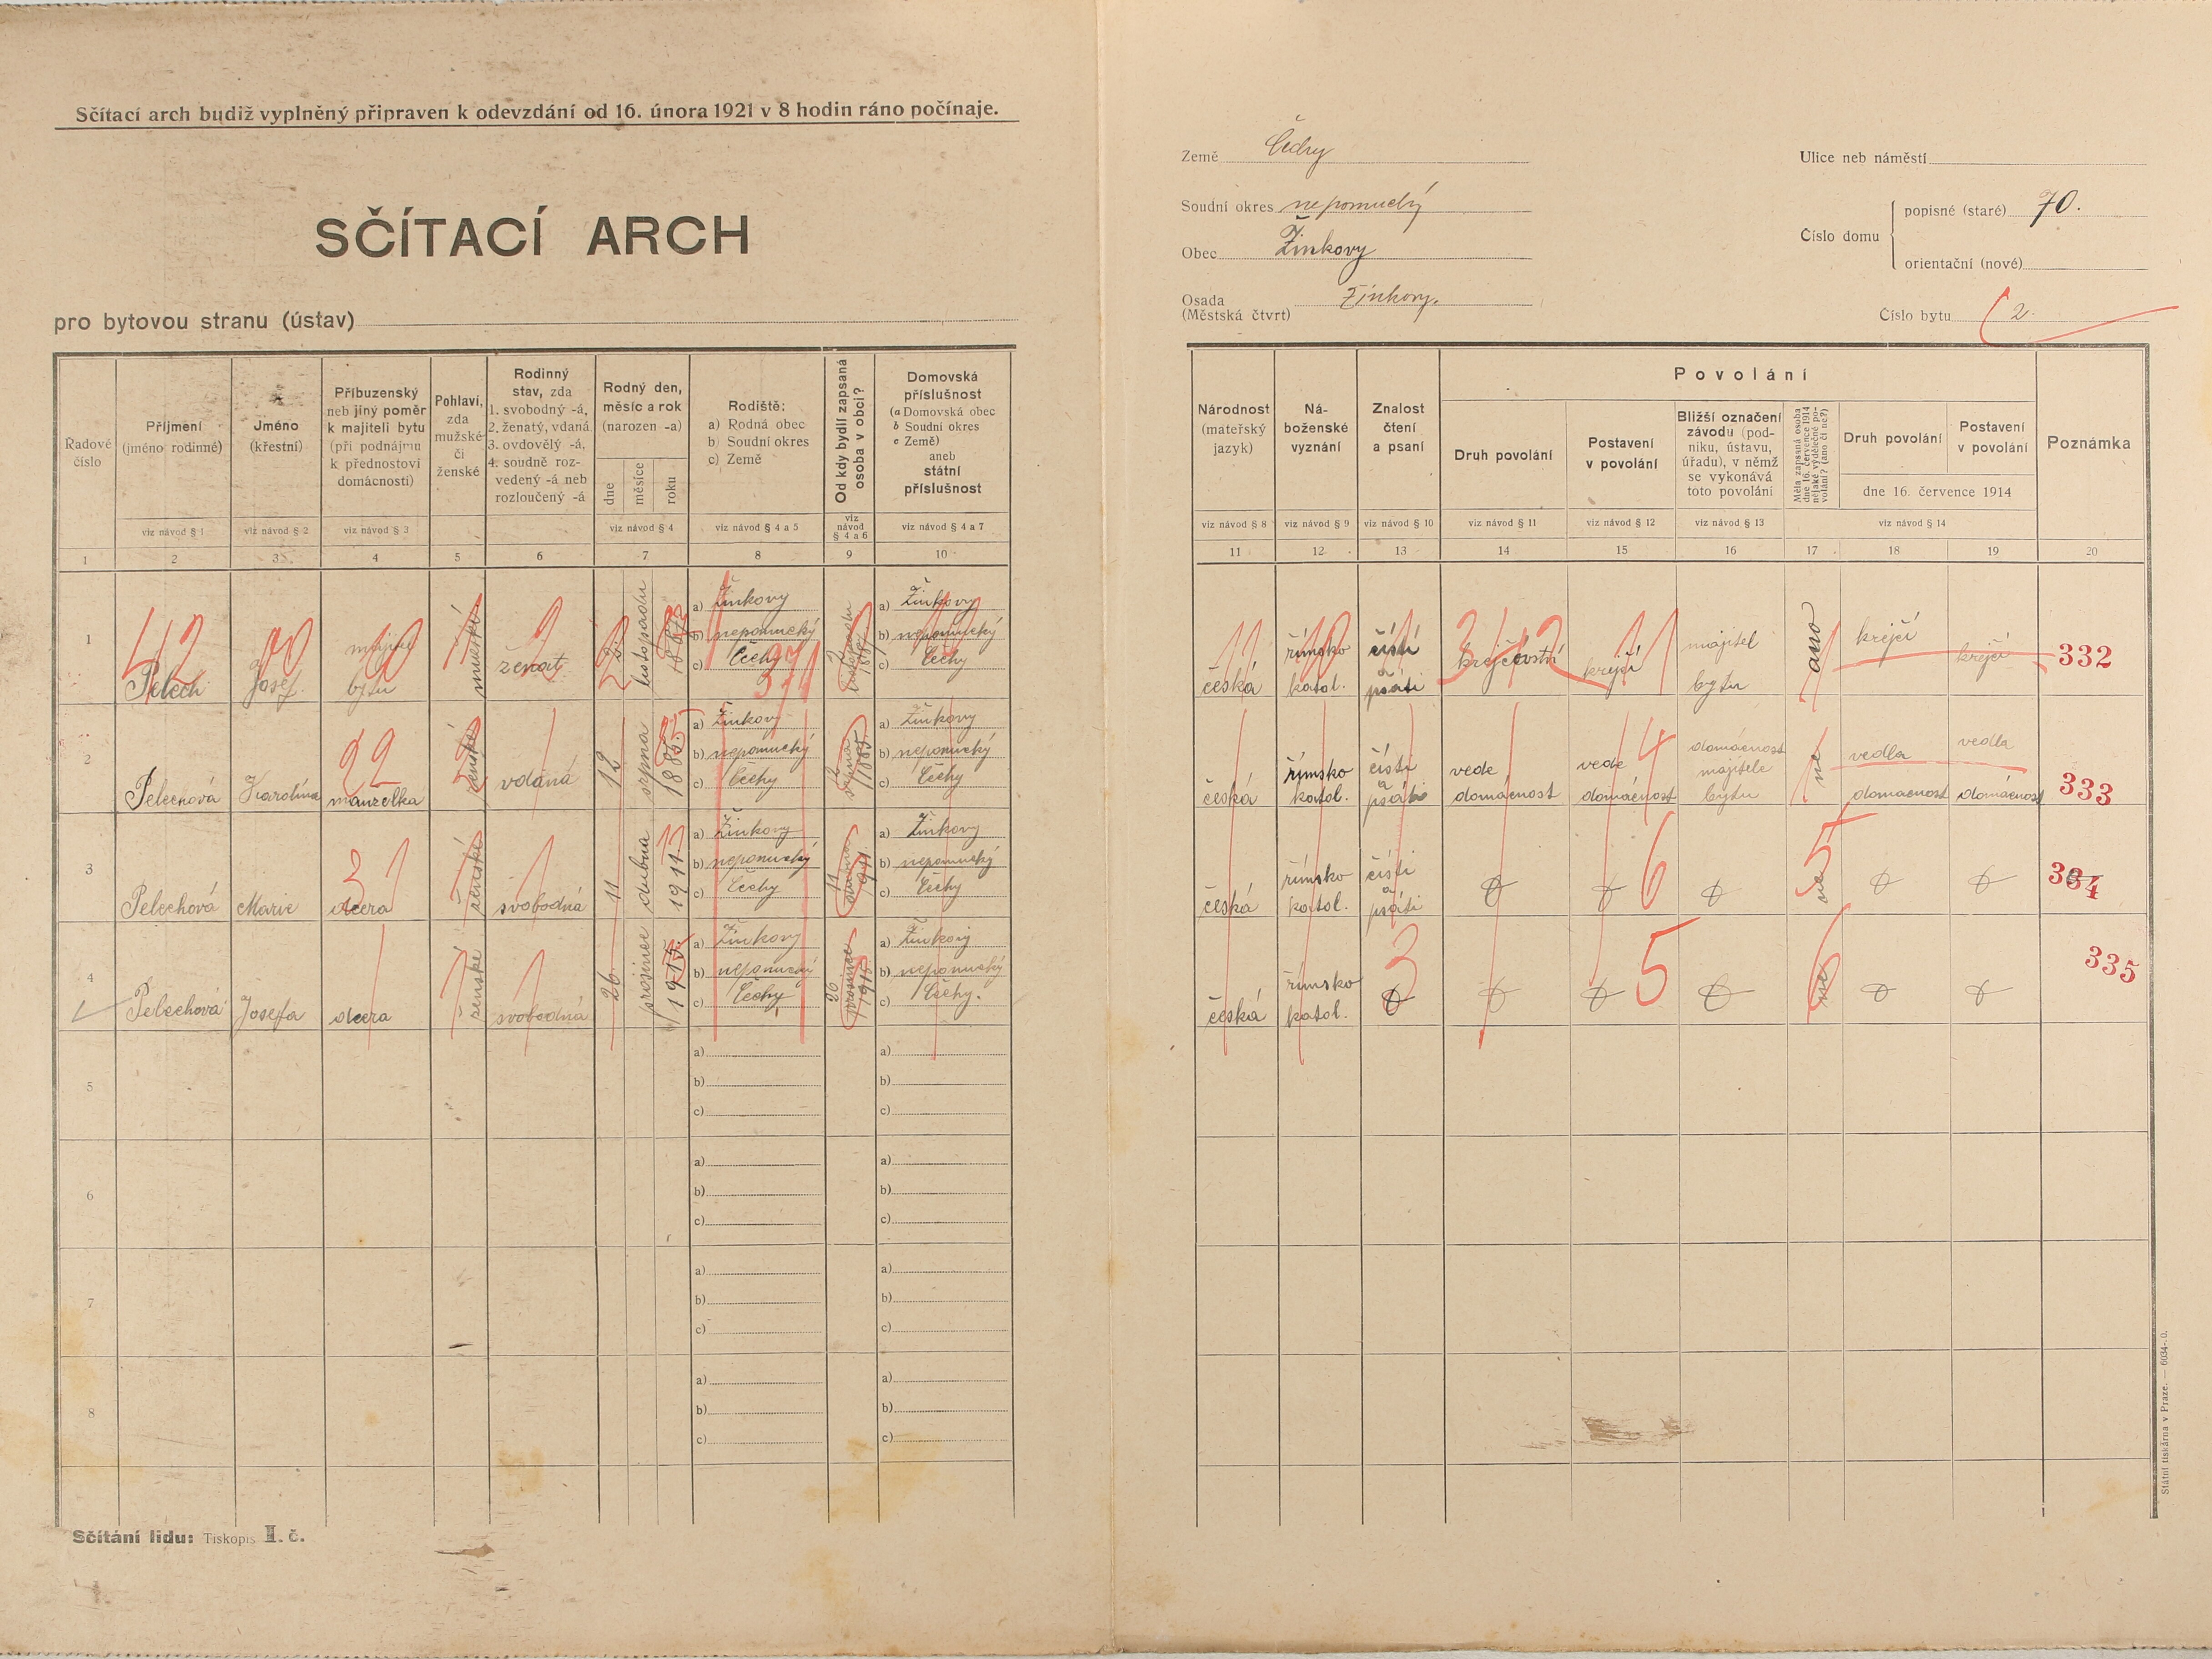 Sčítací arch budiž vyplněný připraven k odevzdání od 16. února 1921 v 8 hodin ráno počínaje.
SČÍTACÍ ARCH
pro bytovou stranu (ústav)
Země Čechy
Soudní okres nepomucký
Obec Žinkovy
Osada Žinkovy.
(Městská čtvrt)
Ulice neb náměstí
Číslo domu
popisné (staré) 70.
orientační (nové)
Číslo bytu 2.
Řadové číslo
Příjmení (jméno rodinné)
Jméno (křestní)
Příbuzenský neb jiný poměr k majiteli bytu (při podnájmu k přednostovi domácnosti)
Pohlaví, zda mužské či ženské
Rodinný stav, zda 1. svobodný -á, 2. ženatý, vdaná 3. ovdovělý -á, 4. soudně rozvedený -á neb rozloučený -á
Rodný den, měsíc a rok (narozen -a)
dne
měsíce
roku
Rodiště: a) Rodná obec b) Soudní okres c) Země
Od kdy bydlí zapsaná osoba v obci?
Domovská příslušnost (a Domovská obec b Soudní okres c Země) aneb státní příslušnost
viz návod § 1
viz návod § 2
viz návod § 3
viz návod § 4
viz návod § 4 a 5
viz návod § 4 a 6
viz návod § 4 a 7
1 2 3 4 5 6 7 8 9 10
Národnost (mateřský jazyk)
Náboženské vyznání
Znalost čtení a psaní
Povolání
Druh povolání
Postavení v povolání
Bližší označení závodu (podniku, ústavu, úřadu), v němž se vykonává toto povolání
Měla zapsaná osoba dne 16. července 1914 nějaké výdělečné povolání? (ano či ne?)
Druh povolání
Postavení v povolání
dne 16. července 1914
Poznámka
viz návod § 8
viz návod § 9
viz návod § 10
viz návod § 11
viz návod § 12
viz návod § 13
viz návod § 14
11 12 13 14 15 16 17 18 19 20
1 Pelech Josef majitel bytu mužské ženat listopadu
a) Žinkovy
b) nepomucký
c) Čechy
a) Žinkovy
b) nepomucký
c) Čechy
česká římsko katol. čísti a psáti krejčovství krejčí majitel bytu ano krejčí krejčí 332
2 Pelechová Karolína manželka ženské vdaná 12 srpna 1885
a) Žinkovy
b) nepomucký
c) Čechy
12 srpna 1885
a) Žinkovy
b) nepomucký
c) Čechy
česká římsko katol. čísti a psáti vede domácnost vede domácnost domácnost majitele bytu ne vedla domácnost vedla domácnost 333
3 Pelechová Marie dcera ženské svobodná 11 dubna 1911
a) Žinkovy
b) nepomucký
c) Čechy
11 dubna 1911
a) Žinkovy
b) nepomucký
c) Čechy
česká římsko katol. čísti a psáti ne 334
4 Pelechová Josefa dcera ženské svobodná 26 prosince 1915
a) Žinkovy
b) nepomucký
c) Čechy
26 prosince 1915
a) Žinkovy
b) nepomucký
c) Čechy.
česká římsko katol. ne 335
5
a)
b)
c)
a)
b)
c)
6
a)
b)
c)
a)
b)
c)
7
a)
b)
c)
a)
b)
c)
8
a)
b)
c)
a)
b)
c)
Sčítání lidu: Tiskopis II. č.
Státní tiskárna v Praze. — 6034-.0.